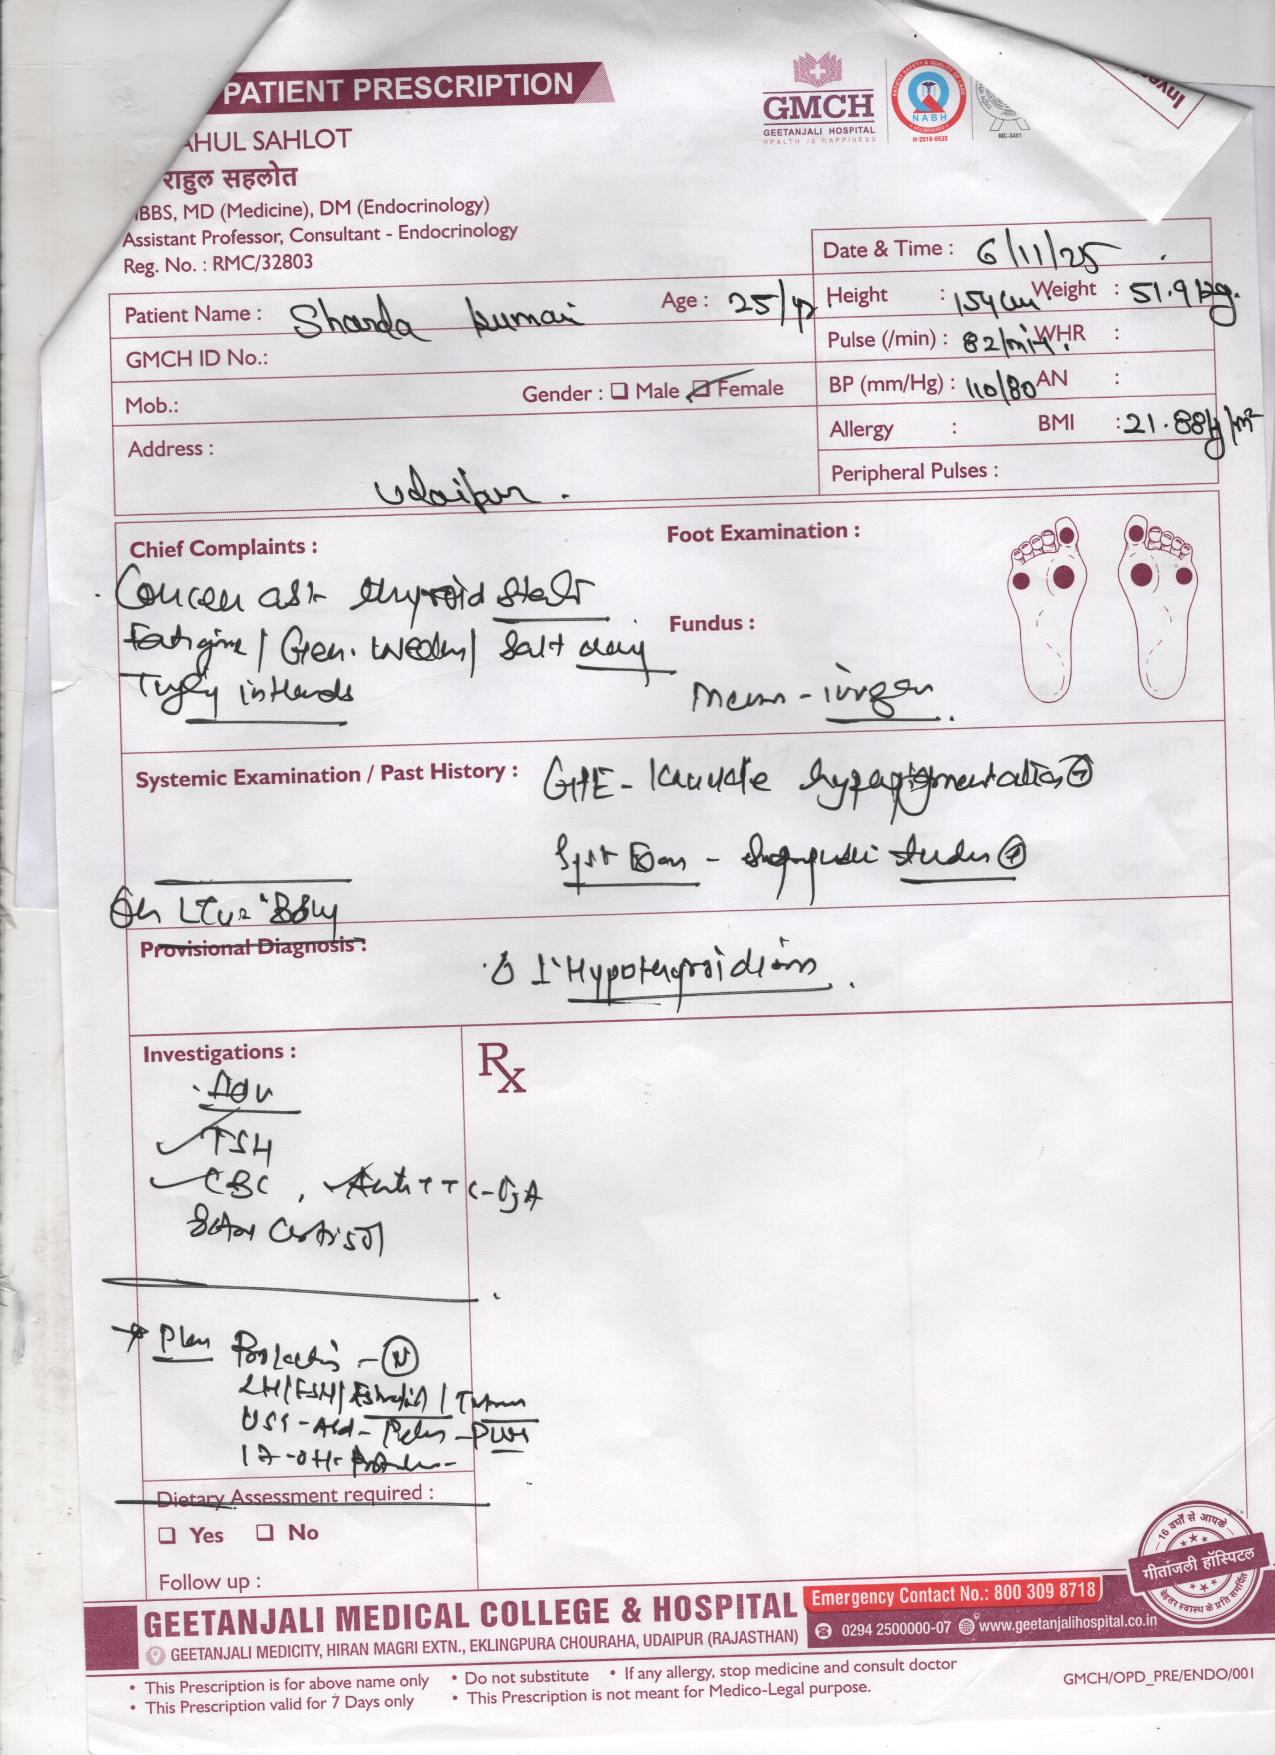 PATIENT PRESCRIPTION
GMCH
GEETANJALI HOSPITAL
HEALTH IS HAPPINESS
NABH
H-2018-0535
MC-3481
AHUL SAHLOT
राहुल सहलोत
BBS, MD (Medicine), DM (Endocrinology)
Assistant Professor, Consultant - Endocrinology
Reg. No. : RMC/32803
Date & Time : 6/11/25
Patient Name : Sharda Kumari Age : 25/yr
Height : 154cm Weight : 51.9 kg.
GMCH ID No.:
Pulse (/min) : 82/min. WHR :
Mob.: Gender : Male Female
BP (mm/Hg) : 110/80 AN :
Address : Udaipur.
Allergy : BMI : 21.88
Peripheral Pulses :
Chief Complaints :
thyroid
Fatigue / Gen. / Salt
in Hands
Foot Examination :
Fundus :
Systemic Examination / Past History : GPE - Knuckle hyperpigmentation +
Provisional Diagnosis :
1° Hypothyroidism.
Investigations :
Adv
TSH
CBC, Anti TTG-IgA
Cortisol
Rx
→ Plan Prolactin - N
LH/FSH/Estradiol/
17-OH-
Dietary Assessment required :
Yes No
Follow up :
16 वर्षों से आपके
गीतांजली हॉस्पिटल
बेहतर स्वास्थ्य के प्रति समर्पित
GEETANJALI MEDICAL COLLEGE & HOSPITAL
GEETANJALI MEDICITY, HIRAN MAGRI EXTN., EKLINGPURA CHOURAHA, UDAIPUR (RAJASTHAN)
Emergency Contact No.: 800 309 8718
0294 2500000-07 www.geetanjalihospital.co.in
• This Prescription is for above name only • Do not substitute • If any allergy, stop medicine and consult doctor
• This Prescription valid for 7 Days only • This Prescription is not meant for Medico-Legal purpose.
GMCH/OPD_PRE/ENDO/001